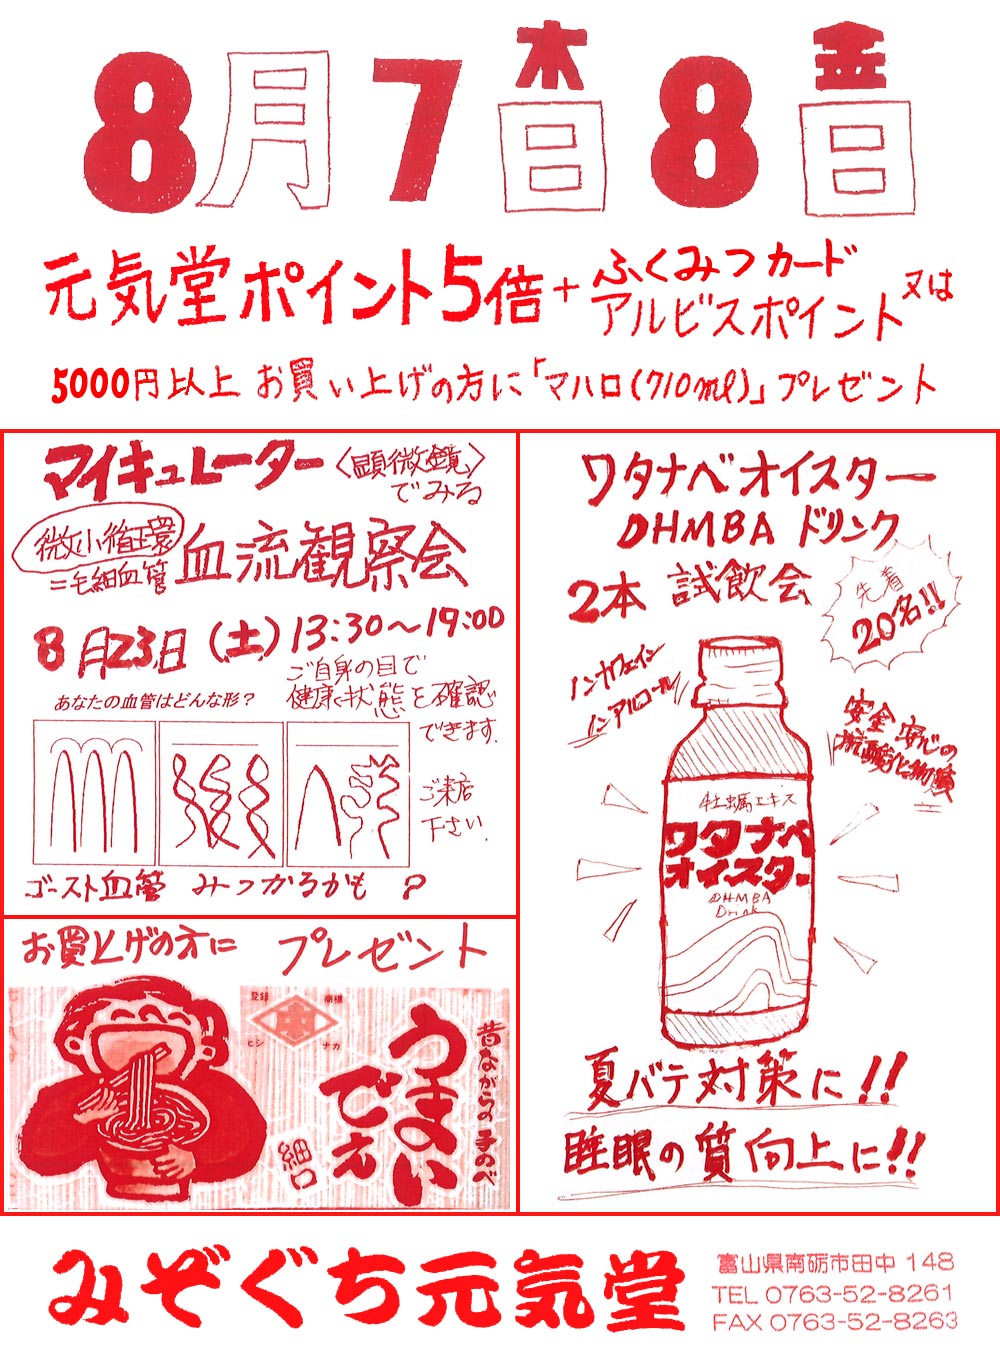 8月7木日8金日
元気堂ポイント5倍+ふくみつカード
アルビスポイント又は
5000円以上お買い上げの方に「マハロ(710ml)」プレゼント
マイキュレーター〈顕微鏡〉
でみる
微小循環
=毛細血管
血流観察会
8月23日(土)13:30～19:00
ご自身の目で
健康状態を確認
できます.
あなたの血管はどんな形？
ご来店
下さい.
ゴースト血管 みつかるかも ?
お買上げの方に プレゼント
登録 商標
ヒシ ナカ
昔ながらの手のべ
うまい
でえ
細口
ワタナベオイスター
DHMBA ドリンク
2本 試飲会
先着
20名!!
ノンカフェイン
ノンアルコール
安全 安心の
抗酸化物質
牡蠣エキス
ワタナベ
オイスター
DHMBA
Drink
夏バテ対策に!!
睡眠の質向上に!!
みぞぐち元気堂
富山県南砺市田中 148
TEL 0763-52-8261
FAX 0763-52-8263